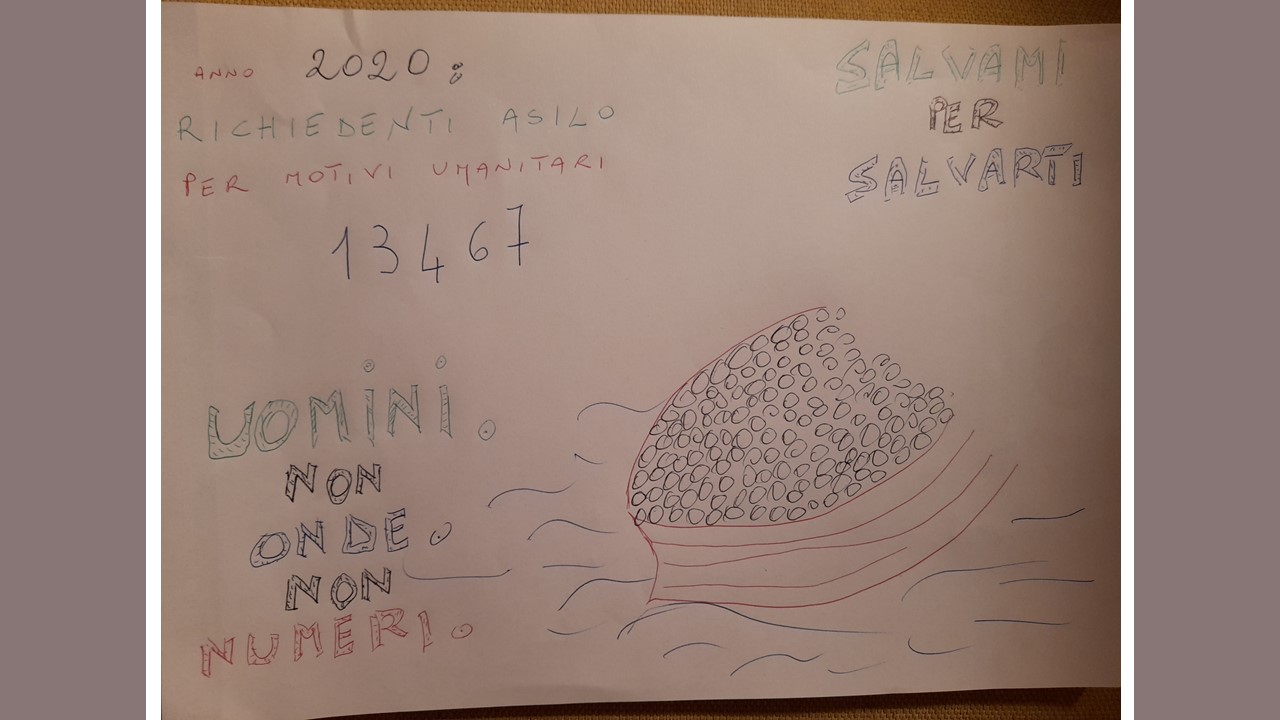 ANNO 2020:
RICHIEDENTI ASILO
PER MOTIVI UMANITARI
13467
SALVAMI
PER
SALVARTI
UOMiNi.
NON
ONDE.
NON
NUMERI.